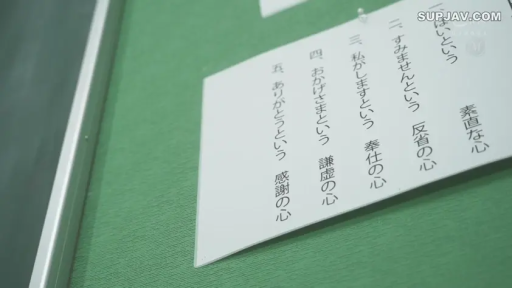 SUPJAV.COM
一、はいという 素直な心
二、すみませんという 反省の心
三、私がしますという 奉仕の心
四、おかげさまという 謙虚の心
五、ありがとうという 感謝の心